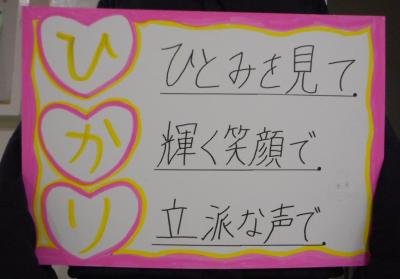 ひ ひとみを見て
か 輝く笑顔で
り 立派な声で